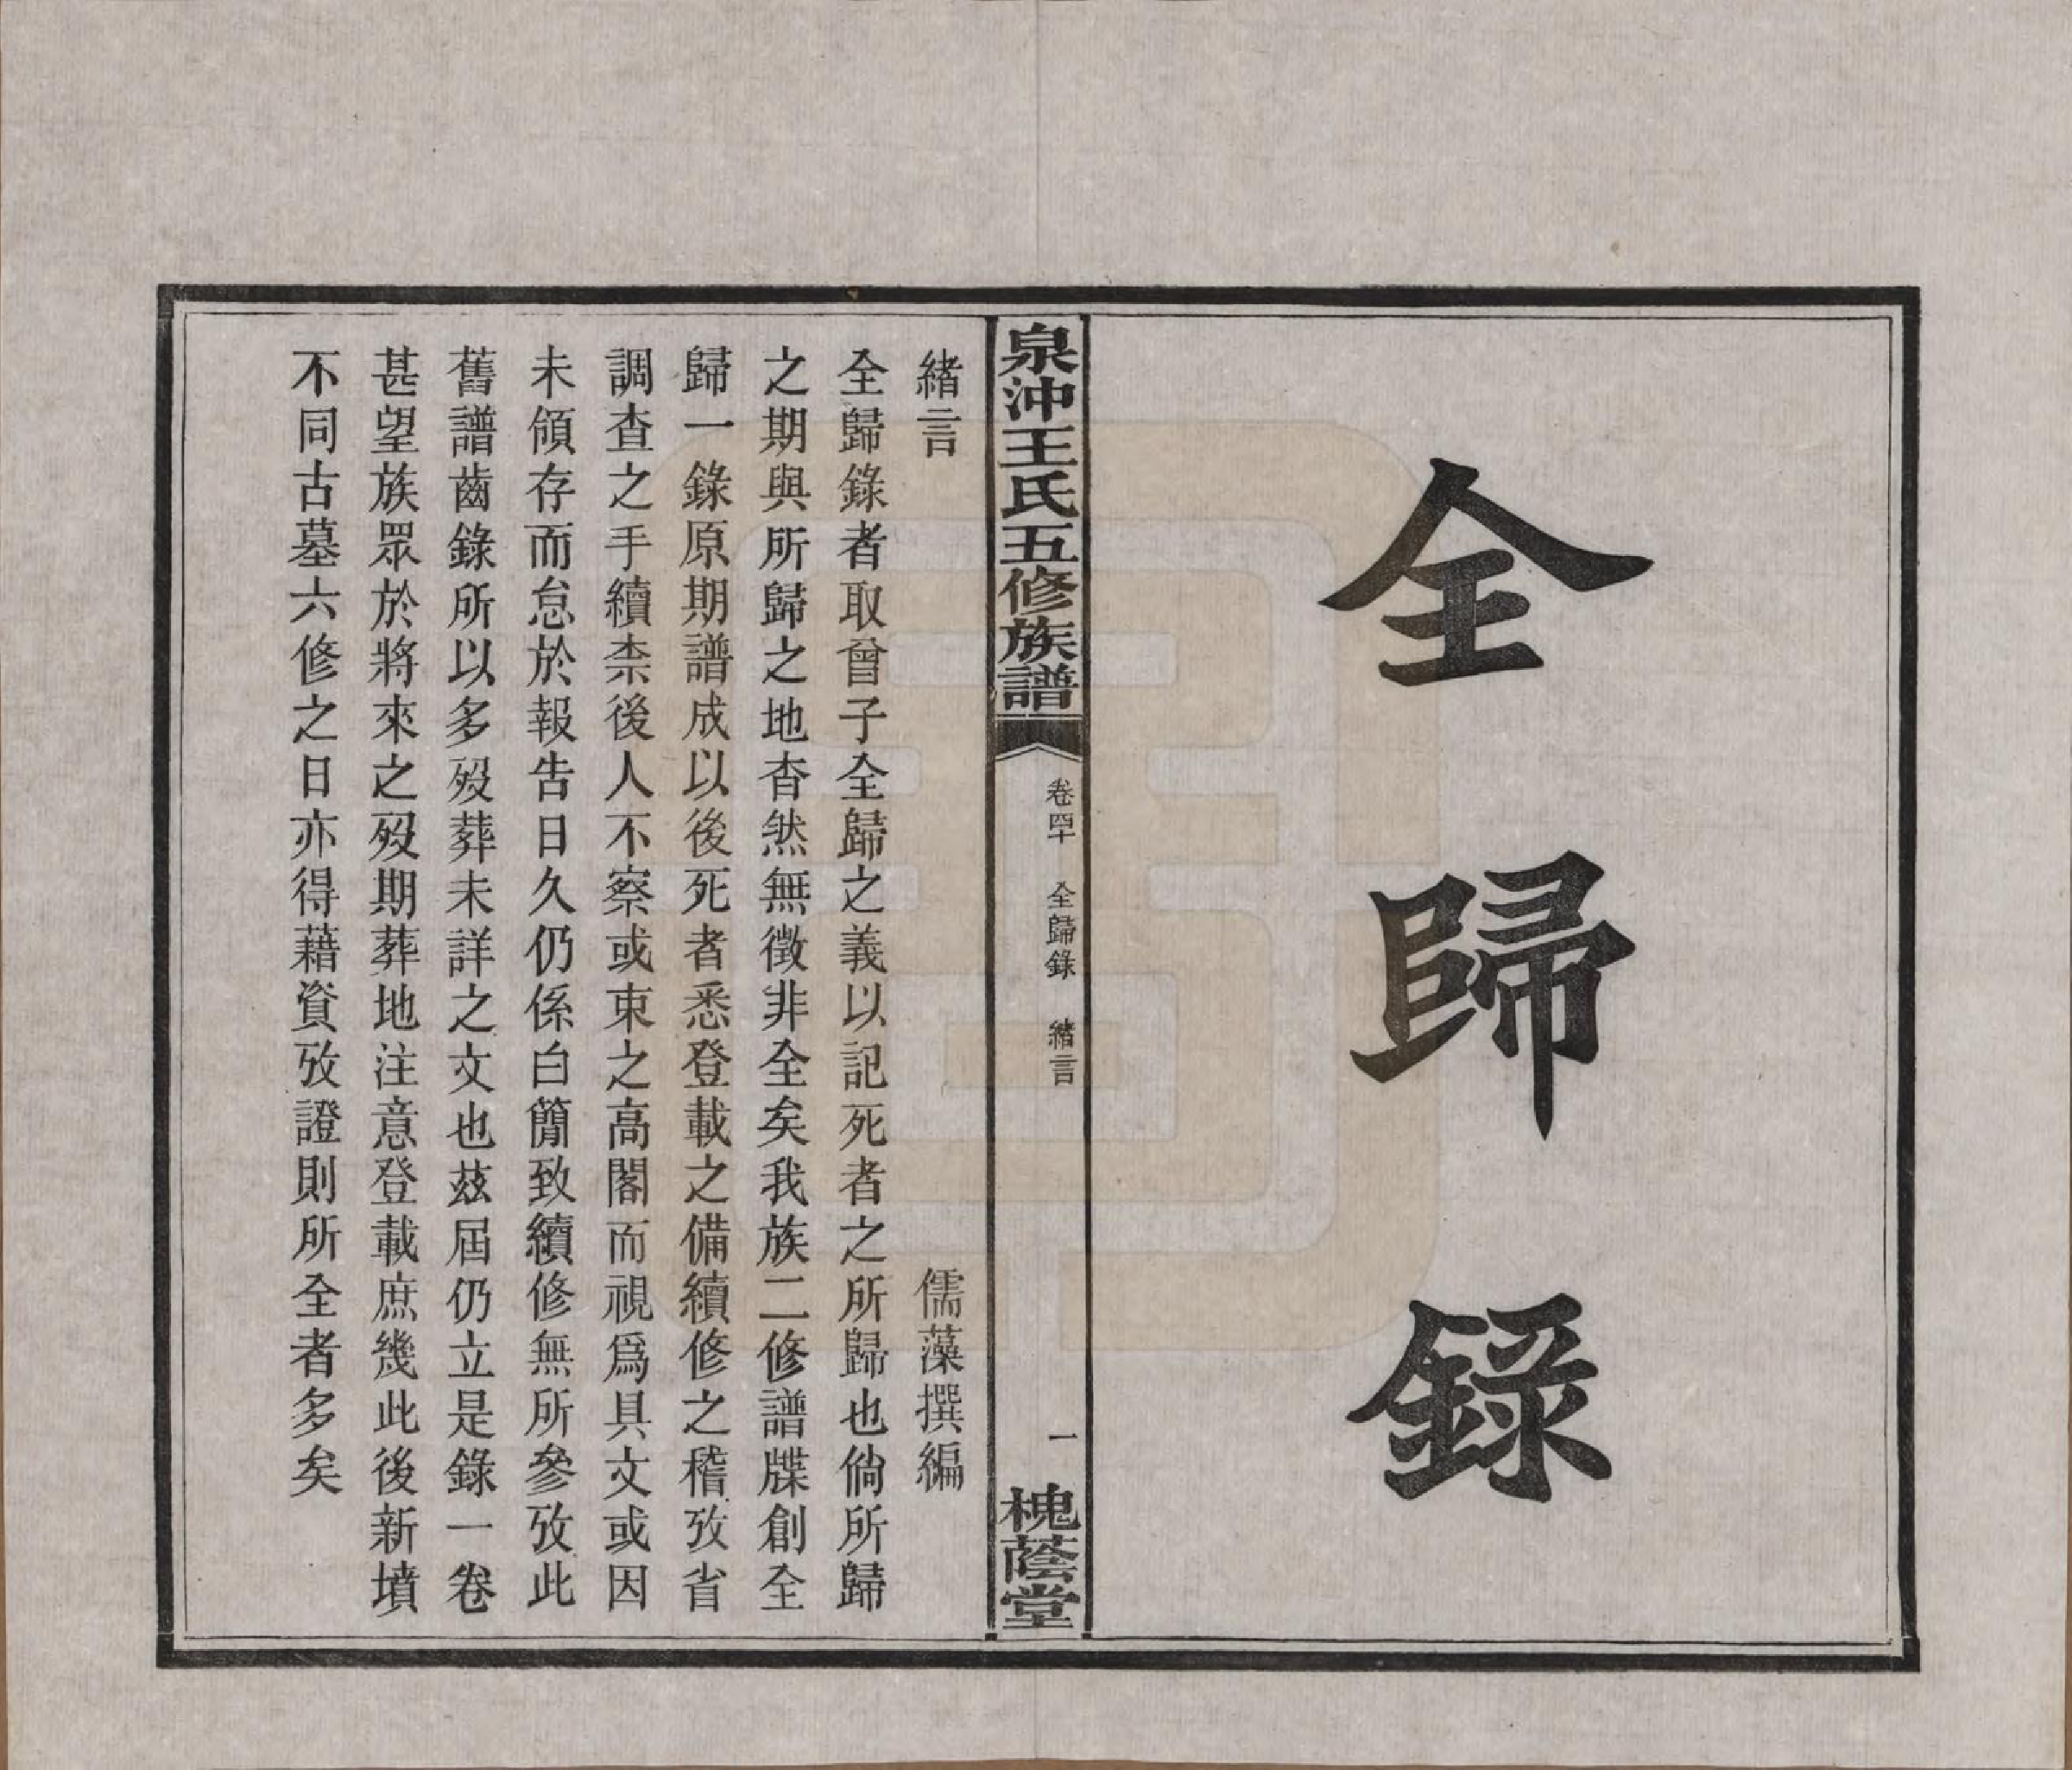 全歸錄
泉沖王氏五修族譜
卷四十　全歸錄　緒言
一
槐蔭堂
緒言　儒藻撰編
全歸錄者取曾子全歸之義以記死者之所歸也倘所歸
之期與所歸之地杳然無徵非全矣我族二修譜牒創全
歸一錄原期譜成以後死者悉登載之備續修之稽攷省
調查之手續柰後人不察或束之高閣而視爲具文或因
未領存而怠於報告日久仍係白簡致續修無所參攷此
舊譜齒錄所以多歿葬未詳之文也茲屆仍立是錄一卷
甚望族眾於將來之歿期葬地注意登載庶幾此後新墳
不同古墓六修之日亦得藉資攷證則所全者多矣